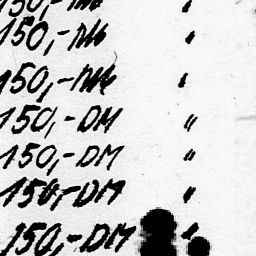 150,- DM "
150,- DM "
150,- DM "
150,- DM "
150,- DM "
150,- DM "
150,- DM "